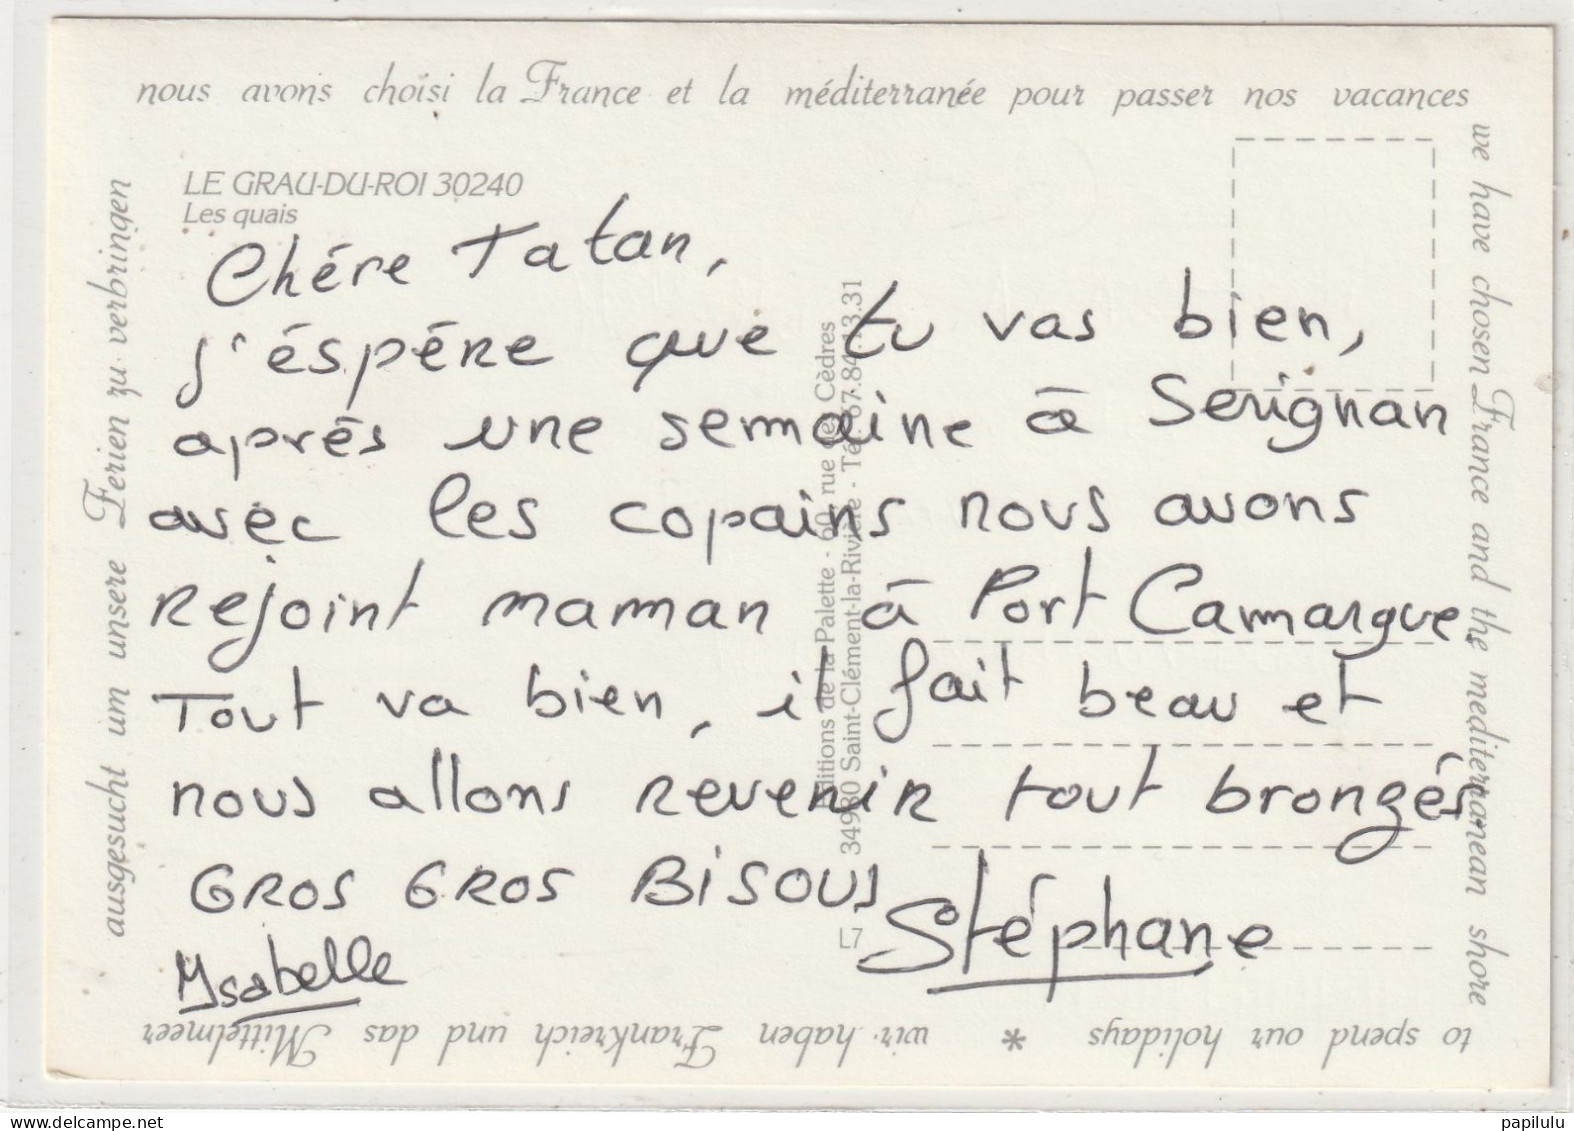 nous avons choisi la France et la méditerranée pour passer nos vacances
we have chosen France and the mediterranean shore
to spend our holidays * wir haben Frankreich und das Mittelmeer
ausgesucht um unsere Ferien zu verbringen
LE GRAU-DU-ROI 30240
Les quais
Chére Tatan,
j'éspére que tu vas bien,
aprés une semaine à Serignan
avec les copains nous avons
rejoint maman à Port Camargue.
Tout va bien, it fait beau et
nous allons revenir tout bronzés.
GROS GROS BiSOUS
Stéphane
Ysabelle
Editions de la Palette - 60, rue des Cèdres
34980 Saint-Clément-la-Rivière - Tél. 67.84.13.31
L7
papilulu